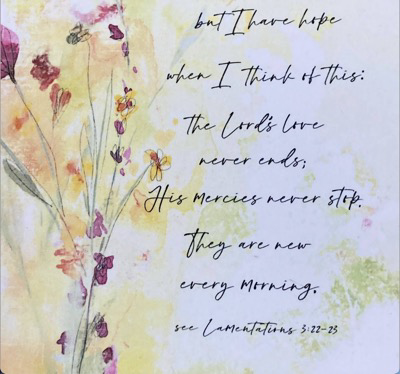 but I have hope
when I think of this:
the Lord's love
never ends;
His mercies never stop.
They are new
every morning.
see Lamentations 3:22-23